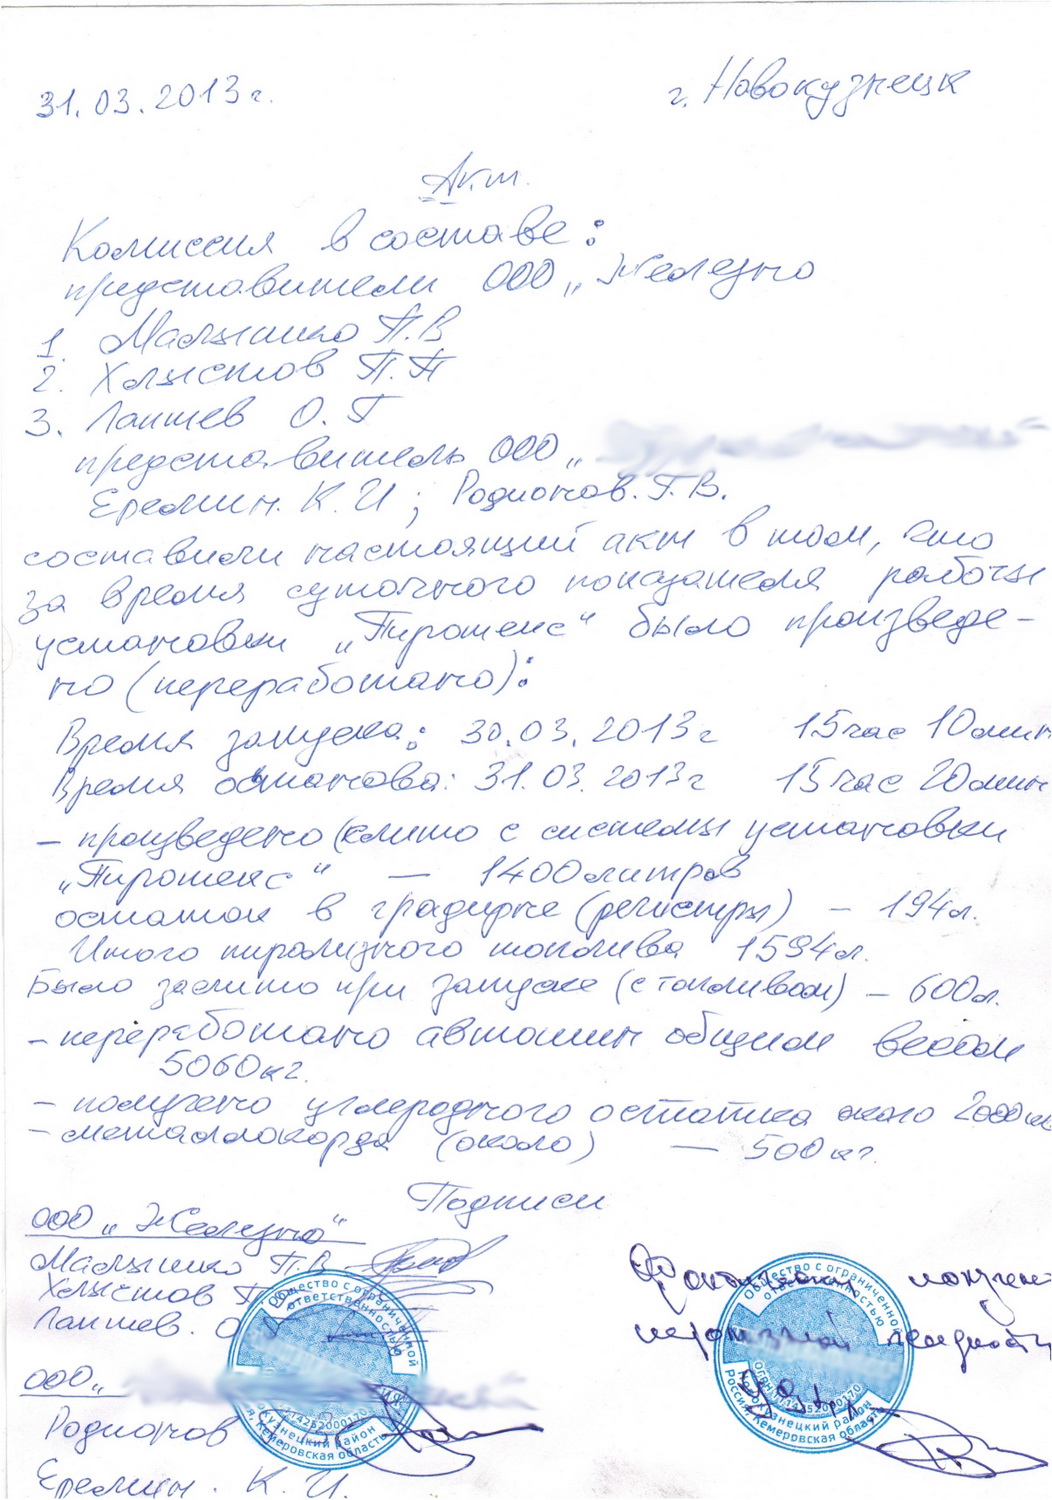 31.03.2013г.
г. Новокузнецк
Акт.
Комиссия в составе:
представители ООО „Железно
1. Малышко П.В
2. Хлыстов П.П
3. Лаптев О.Г
представитель ООО „
Еремин. К.И ; Родионов. Г.В.
составили настоящий акт в том, что
за время суточного показателя работы
установки „Пиротекс“ было произведе-
но (переработано):
Время запуска: 30.03.2013г 15час 10мин
Время останова: 31.03.2013г 15час 20мин
– произведено (слито с системы установки
„Пиротекс“ — 1400литров
остаток в градирне (регистры) – 194л.
Итого пиролизного топлива 1594л.
Было залито при запуске (с топливом) – 600л.
– переработано автошин общим весом
5060кг.
– получено углеродного остатка около 2000кг
– металлокорда (около) — 500кг.
Подписи
ООО „Железно“
Малышко П.В
Хлыстов П.
Лаптев. О
ООО„
Родионов
Еремин. К.И.
Общество с ограниченной
ответственностью
Новокузнецкий район
Кемеровская область
Фактически получен
пиролизной жидкости
Общество с ограниченной
ответственностью
Новокузнецкий район
Россия, Кемеровская область